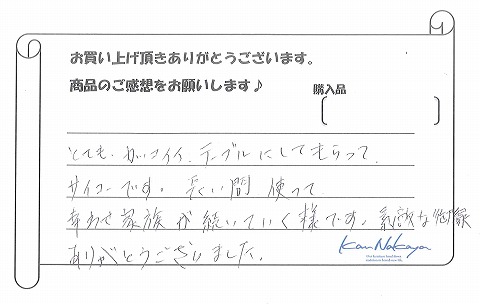 お買い上げ頂きありがとうございます。
商品のご感想をお願いします♪
購入品
とても、カッコイイ、テーブルにしてもらって、
サイコーです。長い間使って
幸わせ家族が続いていく様です。素敵な御家
ありがとうございました。
Kan Nakaya